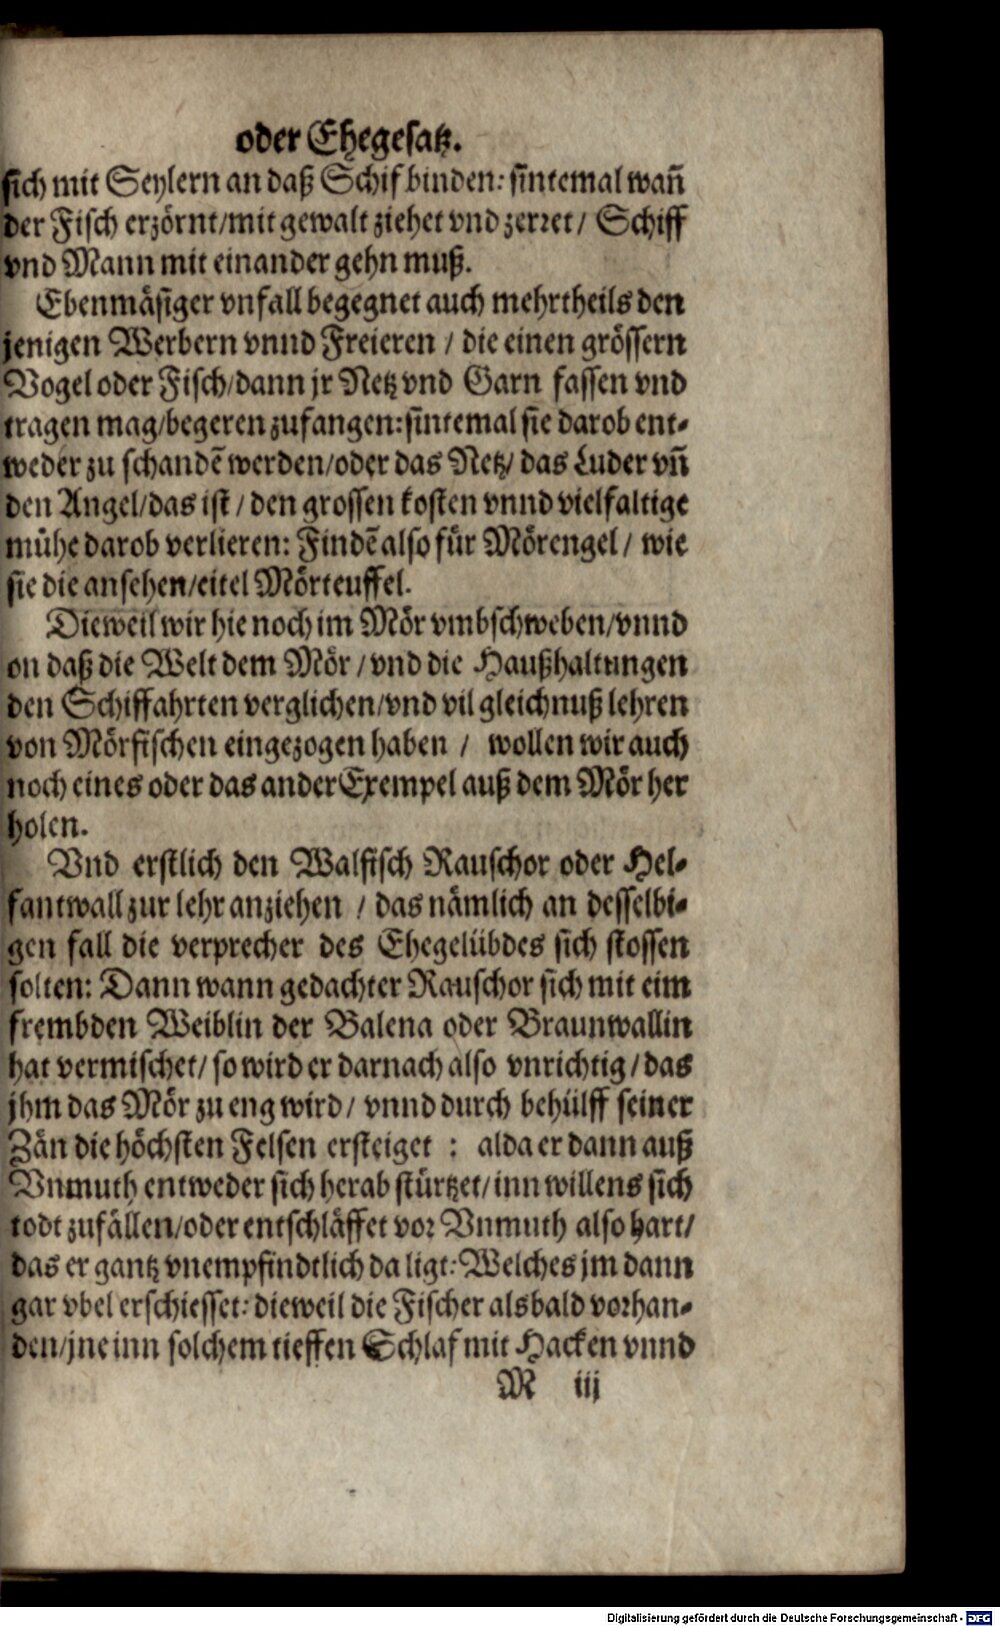 oder Ehegesatz.
sich mit Seylern an daß Schif binden: sintemal wañ
der Fisch erzörnt/mit gewalt ziehet vnd zerret/ Schiff
vnd Mann mit einander gehn muß.
Ebenmäsiger vnfall begegnet auch mehrtheils den
jenigen Werbern vnnd Freieren / die einen grössern
Vogel oder Fisch/dann jr Netz vnd Garn fassen vnd
tragen mag/begeren zufangen: sintemal sie darob ent-
weder zu schandẽ werden/oder das Netz/ das Luder vñ
den Angel/das ist / den grossen kosten vnnd vielfaltige
mühe darob verlieren: Findẽ also für Mörengel/ wie
sie die ansehen/eitel Mörteuffel.
Dieweil wir hie noch im Mör vmbschweben/vnnd
on daß die Welt dem Mör / vnd die Haußhaltungen
den Schiffahrten verglichen/vnd vil gleichnuß lehren
von Mörfischen eingezogen haben / wollen wir auch
noch eines oder das ander Exempel auß dem Mör her
holen.
Vnd erstlich den Walfisch Rauschor oder Hel-
fantwall zur lehr anziehen / das nämlich an desselbi-
gen fall die verprecher des Ehegelübdes sich stossen
solten: Dann wann gedachter Rauschor sich mit eim
frembden Weiblin der Balena oder Braunwallin
hat vermischet/ so wird er darnach also vnrichtig/das
jhm das Mör zu eng wird/ vnnd durch behülff seiner
Zän die höchsten Felsen ersteiget : alda er dann auß
Vnmuth entweder sich herab stürtzet/inn willens sich
todt zufällen/oder entschläffet vor Vnmuth also hart/
das er gantz vnempfindtlich da ligt: Welches jm dann
gar vbel erschiesset: dieweil die Fischer alsbald vorhan-
den/jne inn solchem tieffen Schlaf mit Hacken vnnd
M iij
Digitalisierung gefördert durch die Deutsche Forschungsgemeinschaft - DFG